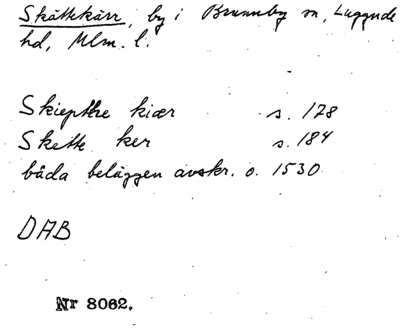 Skättekärr, by i Brunnby sn, Luggude
hd, Mlm. l.
Skiepthe kiær s. 178
Skette ker s. 184
båda beläggen avskr. o. 1530
DAB
Nr 8062.